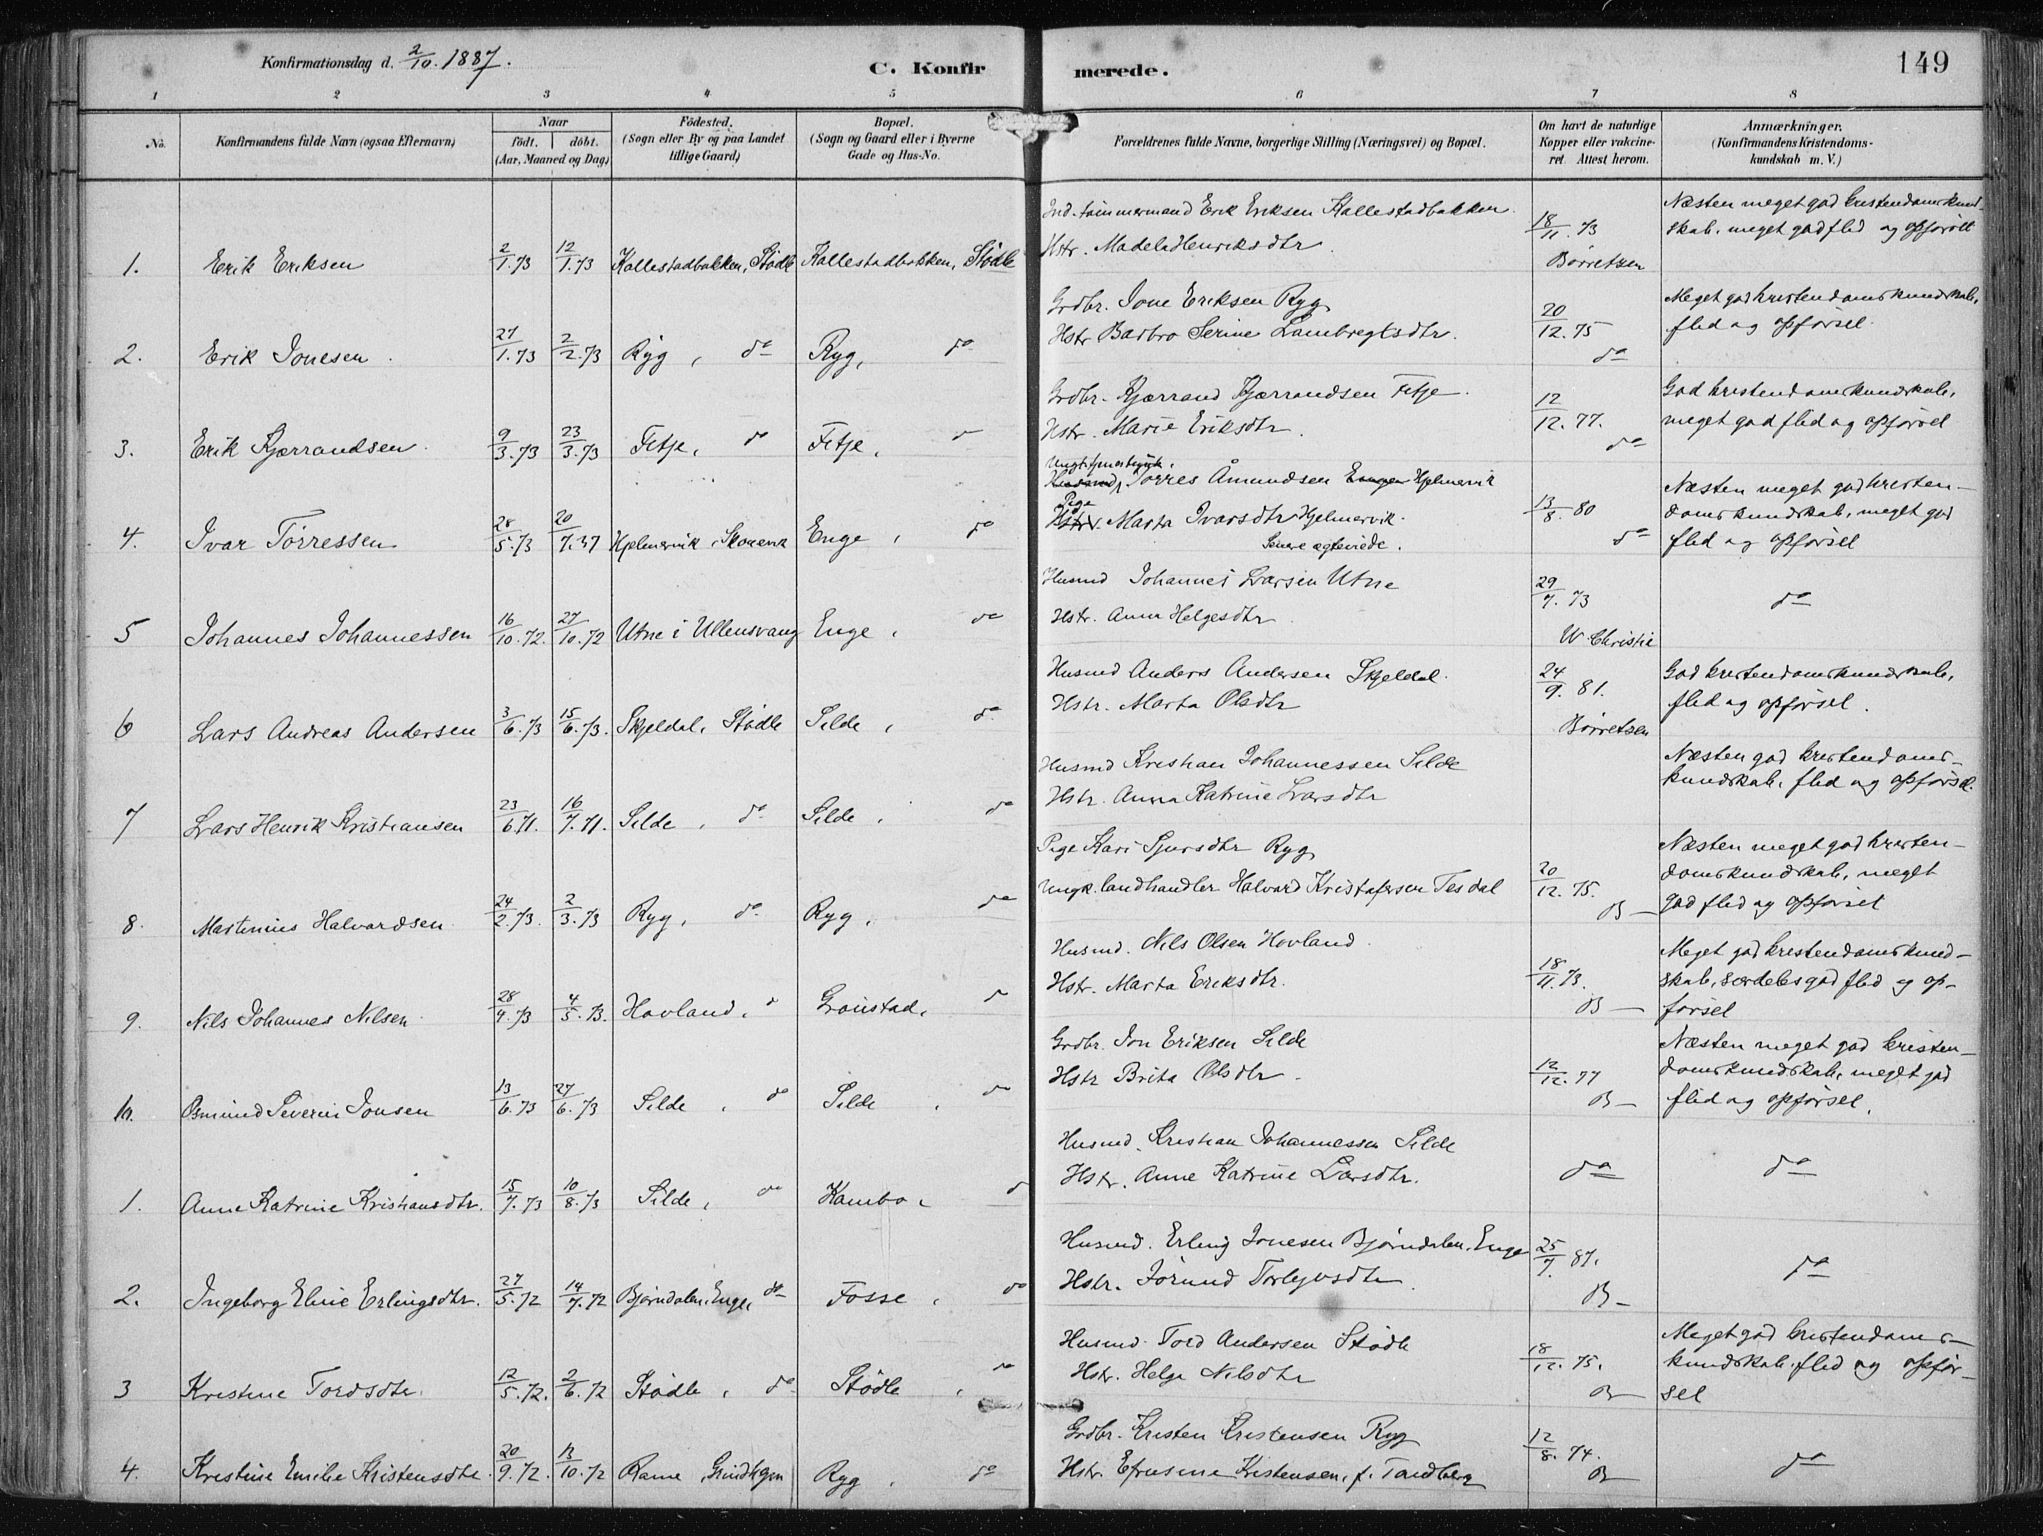 Konfirmationsdag d. 2/10 1887.
C. Konfirmerede.
149
1 2 3 4 5 6 7 8
No.
Konfirmandens fulde Navn (ogsaa Efternavn)
Naar
födt. döbt.
(Aar, Maaned og Dag)
Födested.
(Sogn eller By og paa Landet
tillige Gaard)
Bopæl.
(Sogn og Gaard eller i Byerne
Gade og Hus-No.
Forældrenes fulde Navne, borgerlige Stilling (Næringsvei) og Bopæl.
Om havt de naturlige
Kopper eller vakcine-
ret. Attest herom.
Anmærkninger.
(Konfirmandens Kristendoms-
kundskab m. V.)
1. Erik Eriksen 2/1.73 12/1.73 Kallestadbakken, Stødle Kallestadbakken, Stødle
Ind. tømmermand Erik Eriksen Kallestadbakken.
Hstr. Madela Henriksdtr
18/11.73
Børretzen
Næsten meget god kristendomskund-
skab, meget god flid og opførsel
2. Erik Jonesen 27/1.73 2/2.73 Ryg, do Ryg, do
Grdbr. Jone Eriksen Ryg
Hstr Barbro Serine Lambregtsdtr.
20/12.75
do
Meget god kristendomskundskab,
flid og opførsel.
3. Erik Kjærrandsen 9/3.73 23/3.73 Fitje, do Fitje, do
Grdbr. Kjærrand Kjærrandsen Fitje.
Hstr. Marie Eriksdtr.
12/12.77.
do
God kristendomskundskab,
meget god flid og opførsel
4. Ivar Tørressen 28/5.73 20/7.37 Hjelmervik, Skonevik Enge, do
Tørres Åmundsen Enger Hjelmervik
Pige
Hstr. Marta Ivarsdtr Hjelmervik.
Senere ægteviede.
13/8.80
do
Næsten meget god kristen-
domskundskab, meget god
flid og opførsel
5 Johannes Johannessen 16/10.72. 27/10.72 Utne i Ullensvang Enge, do
Husmd Johannes Larsen Utne
Hstr. Anna Helgesdtr
29/7.73
W. Christie
do
6 Lars Andreas Andersen 3/6.73 15/6.73. Skjeldal, Stødle Silde, do
Husmd Anders Andersen Skjeldal.
Hstr. Marta Olsdtr
24/9.81.
Børretzen
God kristendomskundskab,
flid og opførsel.
7 Lars Henrik Kristiansen 23/6.71. 16/7.71. Silde, do Silde, do
Husmd Kristian Johannessen Silde
Hstr. Anna Katrine Larsdtr
Næsten god kristendoms-
kundskab, flid og opførsel.
8. Martinius Halvardsen 24/2.73. 2/3.73 Ryg, do Ryg, do
Pige Kari Sjursdtr Ryg
Ungk. landhandler Halvard Kristofersen Tesdal
20/12.75.
B—
Næsten meget god kristen-
domskundskab, meget
god flid og opførsel
9. Nils Johannes Nilsen 28/4.73 4/5.73. Hovland, do Gronstad, do
Husmd. Nils Olsen Hovland.
Hstr. Marta Eriksdtr.
18/11.73.
B—
Meget god kristendomskund-
skab, særdeles god flid og op-
førsel
10. Osmund Severin Jonsen 13/6.73 27/6.73 Silde, do Silde, do
Grdbr. Jon Eriksen Silde
Hstr Brita Olsdtr.
12/12.77
B—
Næsten meget god kristen-
domskundskab, meget god
flid og opførsel.
1. Anne Katrine Kristiansdtr. 15/7.73 10/8.73 Silde, do Kambo, do
Husmd. Kristian Johannessen Silde
Hstr. Anne Katrine Larsdtr.
do
do
2. Ingeborg Eline Erlingsdtr. 27/5.72 14/7.72 Bjørndalen, Enge, do Fosse, do
Husmd. Erling Jonesen Bjørndalen, Enge
Hstr. Jørund Torlejvsdtr
25/7.87.
B—
do
3 Kristine Tordsdtr. 12/5.72. 2/6.72 Stødle, do Stødle, do
Husmd. Tord Andersen Stødle
Hstr. Helga Nilsdtr
18/12.75.
B—
Meget god kristendoms-
kundskab, flid og opfør-
sel
4. Kristine Emilie Kristensdtr. 20/9.72. 13/10.72 Rame, Grindhgm Ryg, do
Grdbr. Kristen Kristensen Ryg
Hstr. Efrusine Kristensen, f. Tandberg
12/8.74.
B—
do